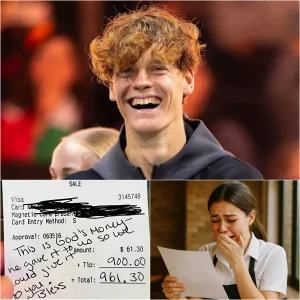 SALE
Visa 3145748
Card
Magnetic card present:
Card Entry Method: S
Approval: 063516
Amount: $ 61.30
+ Tip: 900.00
= Total: 961.30
This is God's Money
he gave it to us so we
could give it
to you